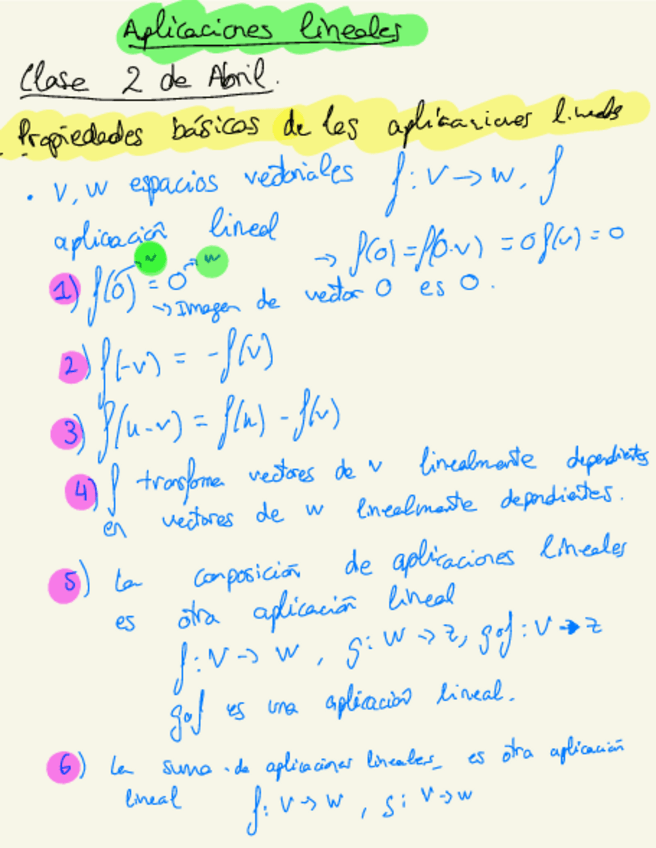 Aplicaciones lineales
Clase 2 de Abril.
Propiedades básicas de las aplicaciones lineales
• V, W espacios vectoriales f: V → W, f
aplicación lineal
→ f(0) = f(0·v) = 0f(v) = 0
1) f(0) = 0
→ Imagen de vector 0 es 0.
2) f(-v) = -f(v)
3) f(u-v) = f(u) - f(v)
4) f transforma vectores de V linealmente dependientes
en vectores de W linealmente dependientes.
5) La composición de aplicaciones lineales
es otra aplicación lineal
f: V → W, g: W → Z, g∘f: V → Z
g∘f es una aplicación lineal.
6) La suma de aplicaciones lineales es otra aplicación
lineal f: V → W, g: V → W